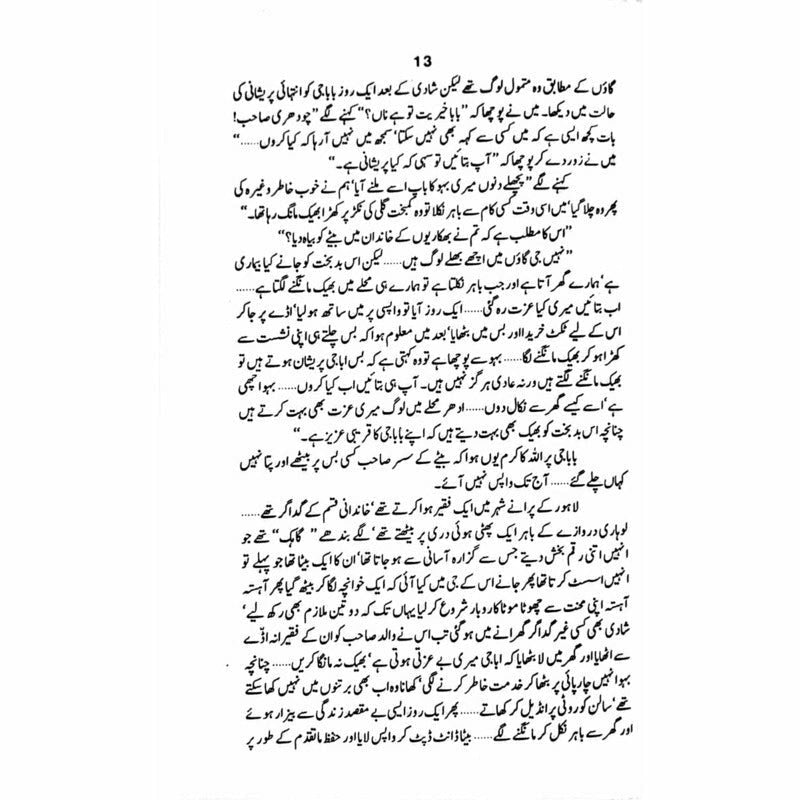 13
گاؤں کے مطابق وہ متمول لوگ تھے لیکن شادی کے بعد ایک روز باباجی کو انتہائی پریشانی کی
حالت میں دیکھا۔ میں نے پوچھا کہ ’’بابا خیریت تو ہے ناں؟‘‘ کہنے لگے ’’چودھری صاحب!
بات کچھ ایسی ہے کہ میں کسی سے کہہ بھی نہیں سکتا‘ سمجھ میں نہیں آ رہا کہ کیا کروں......‘‘
میں نے زور دے کر پوچھا کہ ’’آپ بتائیں تو سہی کہ کیا پریشانی ہے۔‘‘
کہنے لگے ’’پچھلے دنوں میری بہو کا باپ اسے ملنے آیا‘ ہم نے خوب خاطر وغیرہ کی
پھر وہ چلا گیا‘ میں اسی وقت کسی کام سے باہر نکلا تو وہ کمبخت گلی کی نکڑ پر کھڑا بھیک مانگ رہا تھا۔‘‘
’’اس کا مطلب ہے کہ تم نے بھکاریوں کے خاندان میں بیٹے کو بیاہ دیا؟‘‘
’’نہیں جی گاؤں میں اچھے بھلے لوگ ہیں...... لیکن اس بدبخت کو جانے کیا بیماری
ہے‘ ہمارے گھر آتا ہے اور جب باہر نکلتا ہے تو ہمارے ہی محلے میں بھیک مانگنے لگتا ہے......
اب بتائیں میری کیا عزت رہ گئی...... ایک روز آیا تو واپسی پر میں ساتھ ہو لیا‘ اڈے پر جا کر
اس کے لیے ٹکٹ خریدا اور بس میں بٹھایا‘ بعد میں معلوم ہوا کہ بس چلتے ہی اپنی نشست سے
کھڑا ہو کر بھیک مانگنے لگا...... بہو سے پوچھا ہے تو وہ کہتی ہے کہ بس اباجی پریشان ہوتے ہیں تو
بھیک مانگنے لگتے ہیں ورنہ عادی ہرگز نہیں ہیں۔ آپ ہی بتائیں اب کیا کروں...... بہو اچھی
ہے‘ اسے کیسے گھر سے نکال دوں...... ادھر محلے میں لوگ میری عزت بھی بہت کرتے ہیں
چنانچہ اس بدبخت کو بھیک بھی بہت دیتے ہیں کہ اپنے باباجی کا قریبی عزیز ہے۔‘‘
باباجی پر اللہ کا کرم یوں ہوا کہ بیٹے کے سسر صاحب کسی بس پر بیٹھے اور پتا نہیں
کہاں چلے گئے...... آج تک واپس نہیں آئے۔
لاہور کے پرانے شہر میں ایک فقیر ہوا کرتے تھے‘ خاندانی قسم کے گداگر تھے......
لوہاری دروازے کے باہر ایک پھٹی ہوئی دری پر بیٹھتے تھے‘ لگے بندھے ’’گاہک‘‘ تھے جو
انہیں اتنی رقم بخش دیتے جس سے گزارہ آسانی سے ہو جاتا تھا‘ ان کا ایک بیٹا تھا جو پہلے تو
انہیں اسسٹ کرتا تھا پھر جانے اس کے جی میں کیا آئی کہ ایک خوانچہ لگا کر بیٹھ گیا پھر آہستہ
آہستہ اپنی محنت سے چھوٹا موٹا کاروبار شروع کر لیا یہاں تک کہ دو تین ملازم بھی رکھ لیے‘
شادی بھی کسی غیر گداگر گھرانے میں ہو گئی تب اس نے والد صاحب کو ان کے فقیرانہ اڈے
سے اٹھایا اور گھر میں لا بٹھایا کہ اباجی میری بے عزتی ہوتی ہے‘ بھیک نہ مانگا کریں...... چنانچہ
بہو انہیں چارپائی پر بٹھا کر خدمت خاطر کرنے لگی‘ کھانا وہ اب بھی برتنوں میں نہیں کھا سکتے
تھے‘ سالن کو روٹی پر انڈیل کر کھاتے...... پھر ایک روز ایسی بے مقصد زندگی سے بیزار ہوئے
اور گھر سے باہر نکل کر مانگنے لگے...... بیٹا ڈانٹ ڈپٹ کر واپس لایا اور حفظ ماتقدم کے طور پر